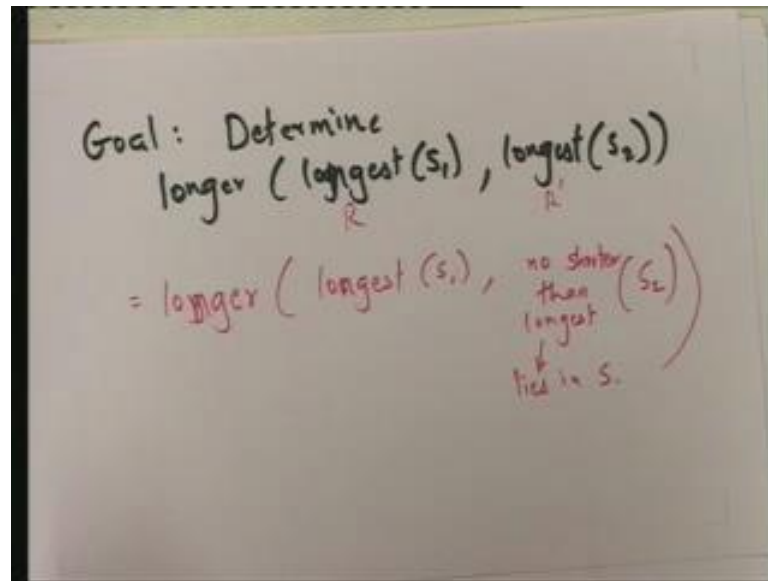 Goal : Determine
longer ( longest (S₁) , longest (S₂))
R R'
= longer ( longest (S₁) , no shorter than longest (S₂) )
↓
lies in S.